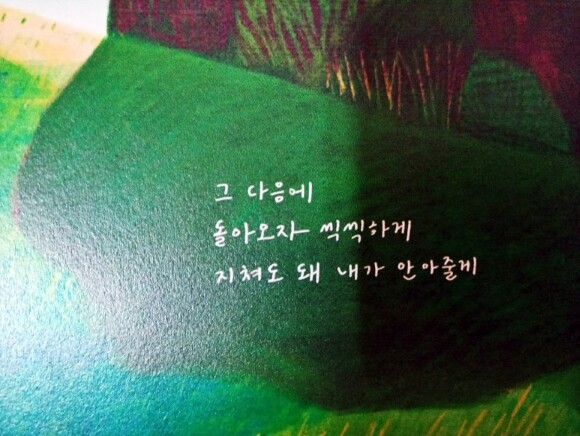 그 다음에
돌아오자 씩씩하게
지쳐도 돼 내가 안아줄게